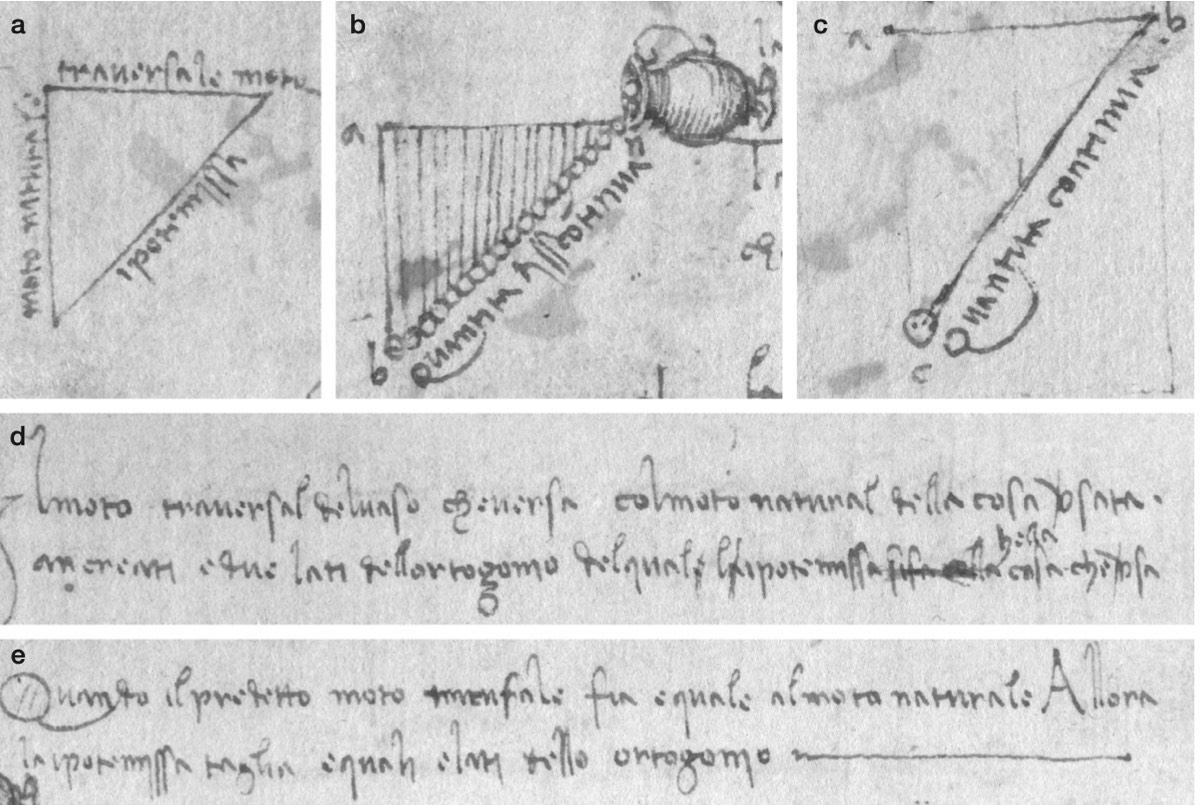 a
traversale moto
moto natural
ipotenissa
b
a
b
Quantita disscōtinua
c
a
b
c
Quantita continua
d
lmoto traversal delvaso cheversa colmoto natural della cosa vsata
an creati e due lati dellortogonio delquale lipotenissa cosa che vsa
e
Quando il predetto moto fia equale al moto naturale Allora
la ipotenissa taglia equali e lati dello ortogonio